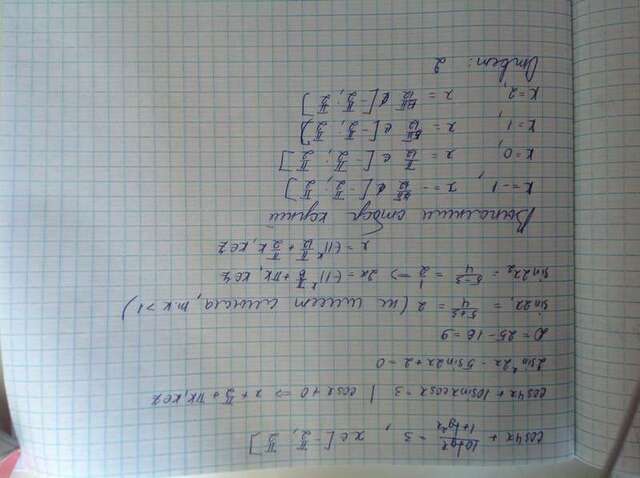 cos4x + 10tgx/(1+tg²x) = 3, x∈[-π/2; π/2]
cos4x + 10sinxcosx = 3 | cosx ≠ 0 => x ≠ π/2 + πk, k∈Z
2sin²2x - 5sin2x + 2 = 0
D = 25 - 16 = 9
sin2x₁ = (5+3)/4 = 2 (не имеет смысла, т.к >1)
sin2x₂ = (5-3)/4 = 1/2 => 2x = (-1)^k π/6 + πk, k∈Z
x = (-1)^k π/12 + π/2 k, k∈Z
Выполним отбор корней
k = -1, x = - /12 ∉ [-π/2; π/2]
k = 0, x = π/12 ∈ [-π/2; π/2]
k = 1, x = 5π/12 ∈ [-π/2; π/2]
k = 2, x = /12 ∉ [-π/2; π/2]
Ответ: 2